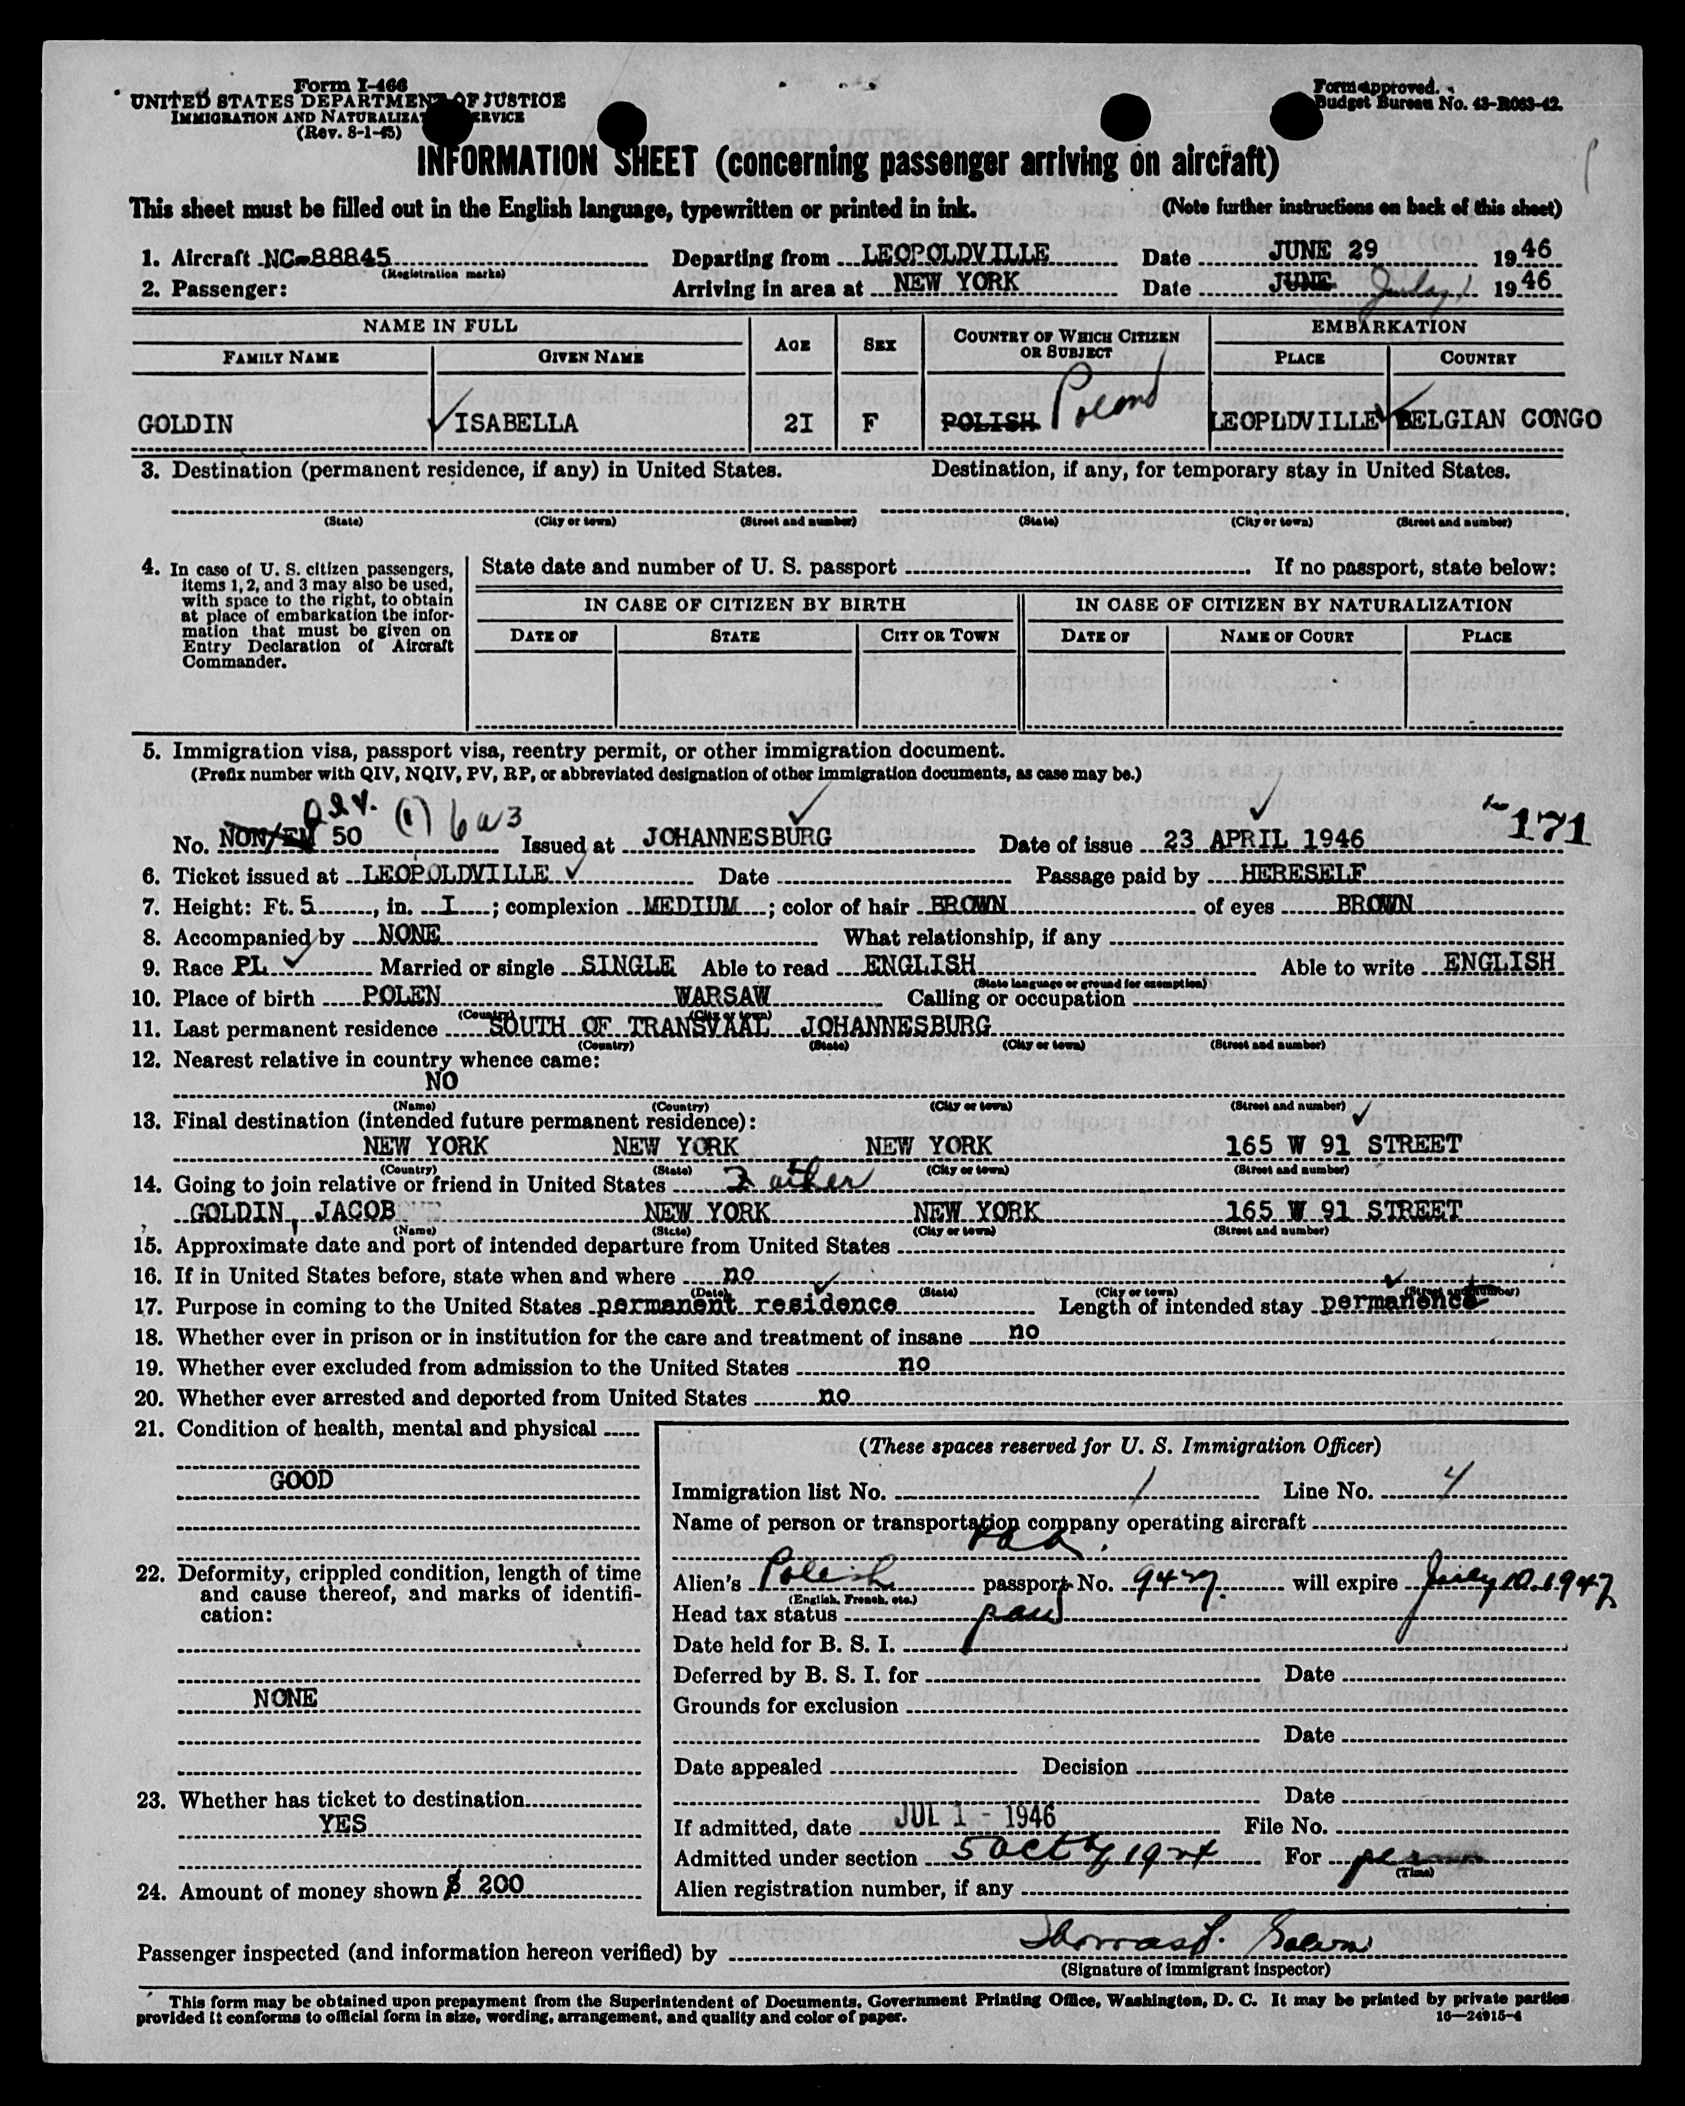 Form I-466
UNITED STATES DEPARTMENT OF JUSTICE
IMMIGRATION AND NATURALIZATION SERVICE
(Rev. 8-1-45)
Form approved.
Budget Bureau No. 43-R063-42.
INFORMATION SHEET (concerning passenger arriving on aircraft)
This sheet must be filled out in the English language, typewritten or printed in ink. (Note further instructions on back of this sheet)
1. Aircraft NC-88845 Departing from LEOPOLDVILLE Date JUNE 29 1946
(Registration marks)
2. Passenger: Arriving in area at NEW YORK Date JUNE July 1 1946
NAME IN FULL AGE SEX COUNTRY OF WHICH CITIZEN OR SUBJECT EMBARKATION
FAMILY NAME GIVEN NAME PLACE COUNTRY
GOLDIN ISABELLA 2I F POLISH Poland LEOPLDVILLE BELGIAN CONGO
3. Destination (permanent residence, if any) in United States. Destination, if any, for temporary stay in United States.
(State) (City or town) (Street and number) (State) (City or town) (Street and number)
4. In case of U. S. citizen passengers, items 1, 2, and 3 may also be used, with space to the right, to obtain at place of embarkation the information that must be given on Entry Declaration of Aircraft Commander.
State date and number of U. S. passport If no passport, state below:
IN CASE OF CITIZEN BY BIRTH IN CASE OF CITIZEN BY NATURALIZATION
DATE OF STATE CITY OR TOWN DATE OF NAME OF COURT PLACE
5. Immigration visa, passport visa, reentry permit, or other immigration document.
(Prefix number with QIV, NQIV, PV, RP, or abbreviated designation of other immigration documents, as case may be.)
Q.I.V. (1) 6a3 171
No. 50 Issued at JOHANNESBURG Date of issue 23 APRIL 1946
6. Ticket issued at LEOPOLDVILLE Date Passage paid by HERESELF
7. Height: Ft. 5, in. I; complexion MEDIUM; color of hair BROWN of eyes BROWN
8. Accompanied by NONE What relationship, if any
9. Race PL Married or single SINGLE Able to read ENGLISH Able to write ENGLISH
(State language or ground for exemption)
10. Place of birth POLEN WARSAW Calling or occupation
(Country) (City or town)
11. Last permanent residence SOUTH OF TRANSVAAL JOHANNESBURG
(Country) (State) (City or town) (Street and number)
12. Nearest relative in country whence came:
NO
(Name) (Country) (City or town) (Street and number)
13. Final destination (intended future permanent residence):
NEW YORK NEW YORK NEW YORK 165 W 91 STREET
(Country) (State) (City or town) (Street and number)
14. Going to join relative or friend in United States Father
GOLDIN, JACOB NEW YORK NEW YORK 165 W 91 STREET
(Name) (State) (City or town) (Street and number)
15. Approximate date and port of intended departure from United States
16. If in United States before, state when and where no
(Date) (State) (City or town) (Street and number)
17. Purpose in coming to the United States permanent residence Length of intended stay permanent
18. Whether ever in prison or in institution for the care and treatment of insane no
19. Whether ever excluded from admission to the United States no
20. Whether ever arrested and deported from United States no
21. Condition of health, mental and physical
GOOD
22. Deformity, crippled condition, length of time and cause thereof, and marks of identification:
NONE
23. Whether has ticket to destination
YES
24. Amount of money shown $ 200
(These spaces reserved for U. S. Immigration Officer)
Immigration list No. 1 Line No. 4
Name of person or transportation company operating aircraft
Paa.
Alien's Polish passport No. 9427. will expire July 10, 1947
(English, French, etc.)
Head tax status paid
Date held for B. S. I.
Deferred by B. S. I. for Date
Grounds for exclusion
Date
Date appealed Decision
Date
If admitted, date JUL 1 - 1946 File No.
Admitted under section 5 Act of 1924 For perm
(Time)
Alien registration number, if any
Passenger inspected (and information hereon verified) by Thomas
(Signature of immigrant inspector)
This form may be obtained upon prepayment from the Superintendent of Documents, Government Printing Office, Washington, D. C. It may be printed by private parties
provided it conforms to official form in size, wording, arrangement, and quality and color of paper. 16—24915-4